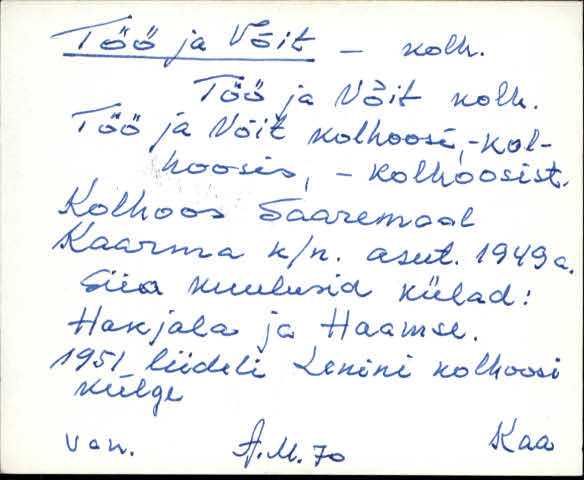 Töö ja Võit – kolh.
Töö ja Võit kolh.
Töö ja Võit kolhoosi, -kol-
hoosis, – kolhoosist.
Kolhoos Saaremaal
Kaarma k/n. asut. 1949 a.
Siia kuulusid külad:
Hakjala ja Haamse.
1951 liideti Lenini kolhoosi
külge
Van. A.M. 70 Kaa